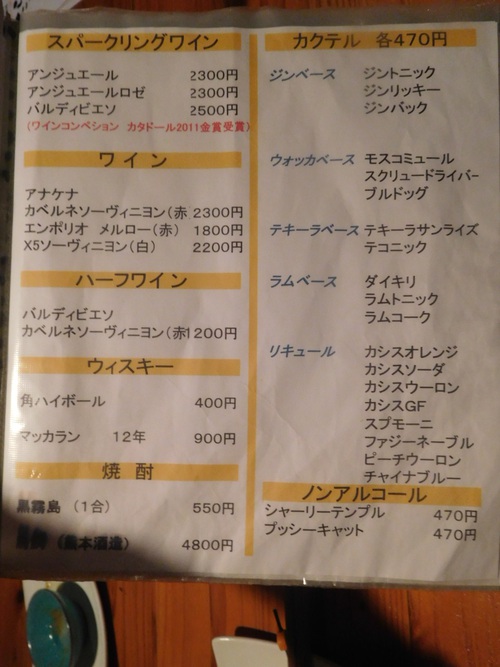 スパークリングワイン
アンジュエール 2300円
アンジュエールロゼ 2300円
バルディビエソ 2500円
(ワインコンペション カタドール2011金賞受賞)
ワイン
アナケナ
カベルネソーヴィニヨン(赤 2300円
エンポリオ メルロー(赤) 1800円
X5ソーヴィニヨン(白) 2200円
ハーフワイン
バルディビエソ
カベルネソーヴィニヨン(赤1200円
ウィスキー
角ハイボール 400円
マッカラン 12年 900円
焼酎
黒霧島 (1合) 550円
本酒造) 4800円
カクテル 各470円
ジンベース ジントニック
ジンリッキー
ジンバック
ウォッカベース モスコミュール
スクリュードライバー
ブルドッグ
テキーラベース テキーラサンライズ
テコニック
ラムベース ダイキリ
ラムトニック
ラムコーク
リキュール カシスオレンジ
カシスソーダ
カシスウーロン
カシスGF
スプモーニ
ファジーネーブル
ピーチウーロン
チャイナブルー
ノンアルコール
シャーリーテンプル 470円
プッシーキャット 470円